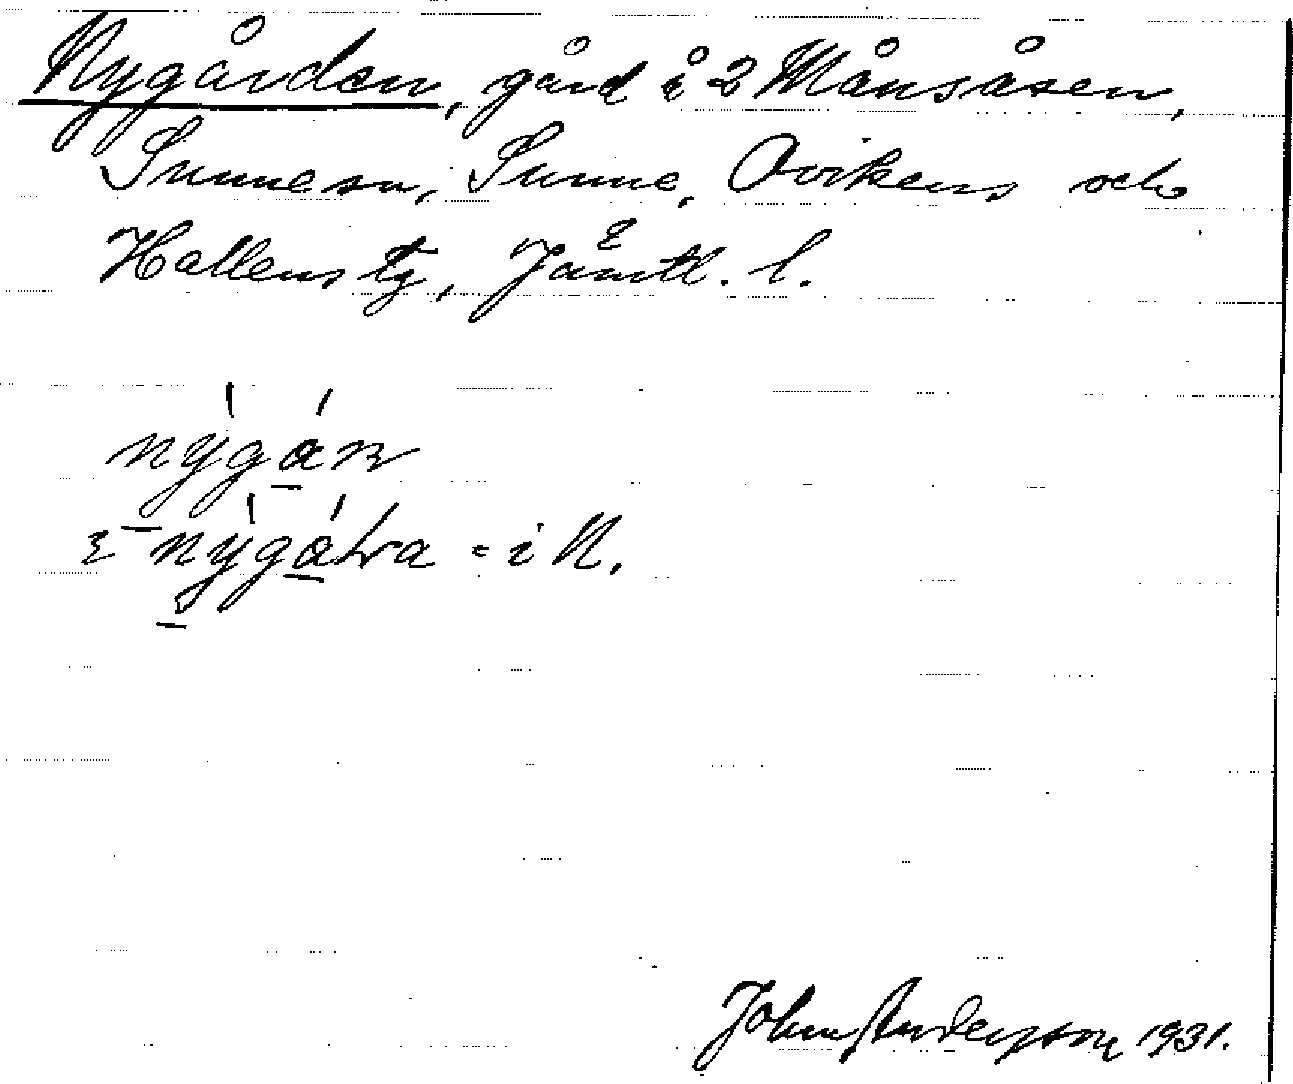 Nygården, gård å 2 Månsåsen,
Sunne sn, Sunne, Ovikens och
Hallens tg, Jämtl. l.
nýgán
nýgáɬɴa = i N.
John Andersson 1931.